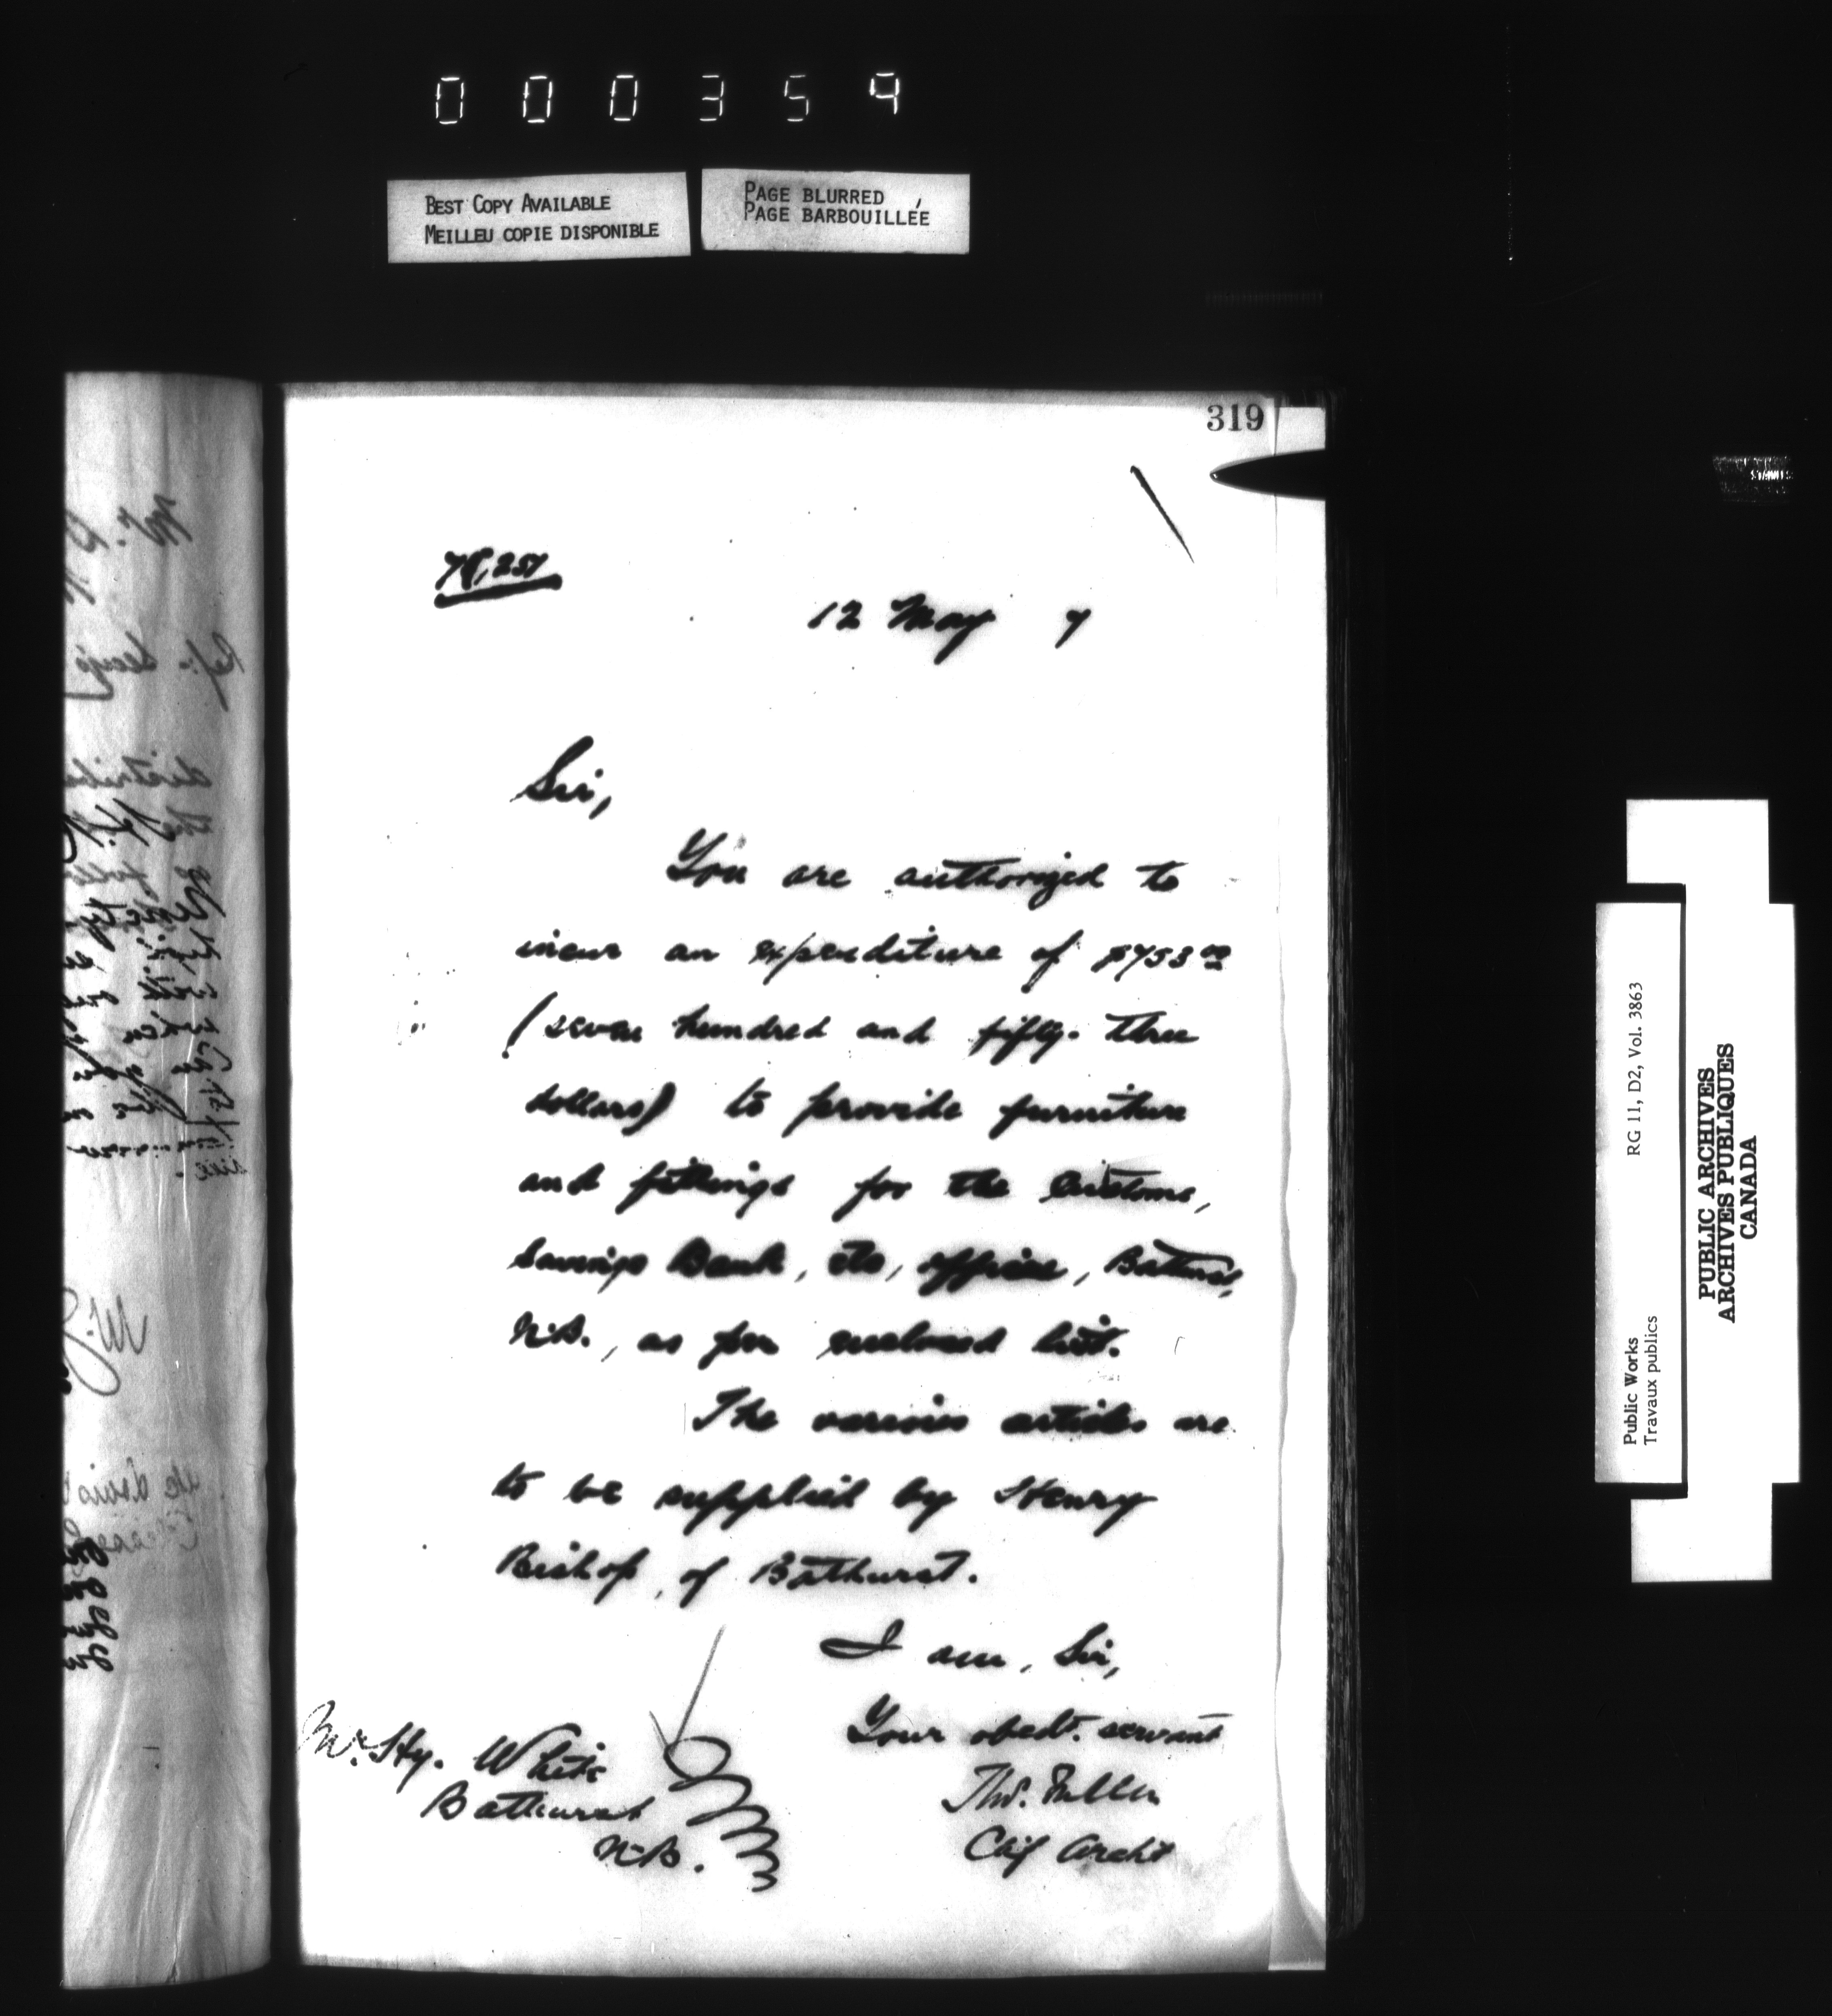 000359
BEST COPY AVAILABLE
MEILLEU COPIE DISPONIBLE
PAGE BLURRED
PAGE BARBOUILLÉE
319
12 May 7
Sir,
You are authorized to
incur an expenditure of $753.00
(seven hundred and fifty-three
dollars) to provide furniture
and fittings for the Customs,
Savings Bank, etc, offices, Bathurst,
N.B., as per enclosed list.
The various articles are
to be supplied by Henry
Bishop, of Bathurst.
I am, Sir,
Your obedt. servant
Thos. Fuller
Chf Archt
Mr. Hy. White
Bathurst
N.B.
Public Works
Travaux publics
RG 11, D2, Vol. 3863
PUBLIC ARCHIVES
ARCHIVES PUBLIQUES
CANADA